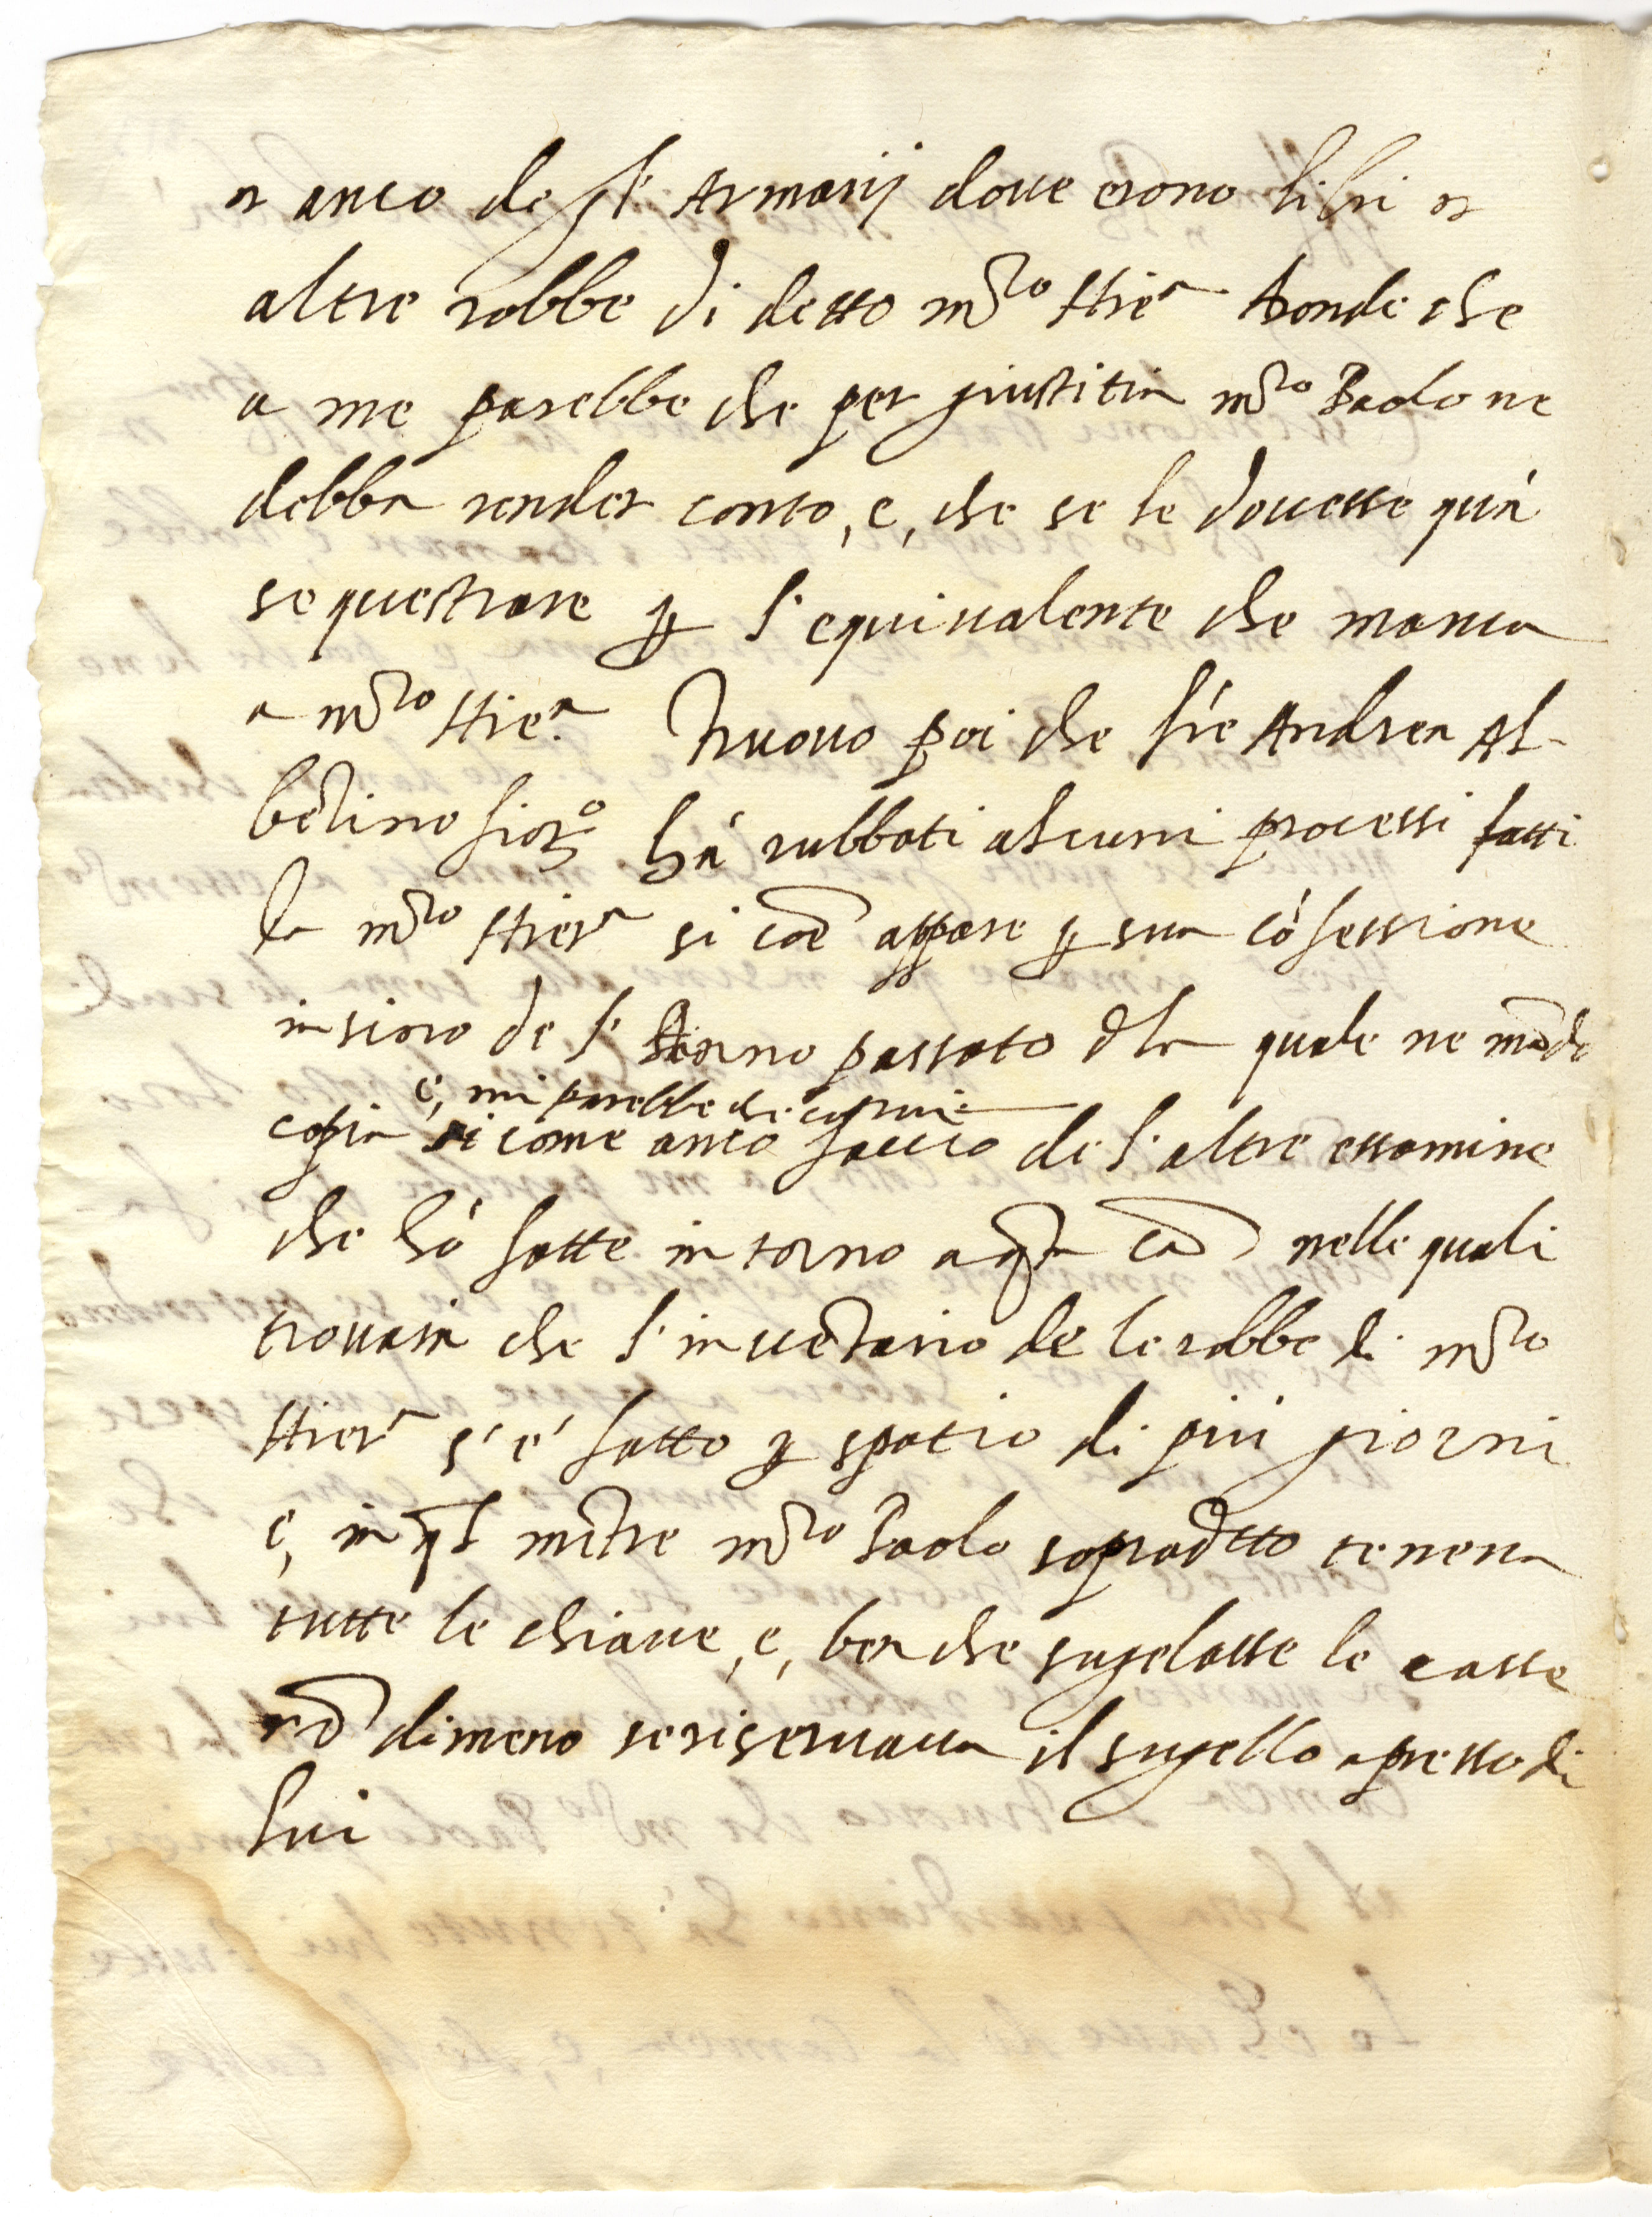 et anco de gl' Armarij doue erono libri et
altre robbe di detto m.ro Hier.a donde che
a me parebbe che per giustitia m.ro Paolo ne
debba render conto, e, che se le douesse quà
sequestrare p l'equiualente che manca
a m.ro Hier.a Truouo poi che fr'e Andrea Al-
bētino fior.o hà rubbati alcuni processi fatti
da m.ro Hier.a si coē appare p sua cō fessione
in sino de l' Anno passato dla quale ne mādo
e, mi parebbe che
copia si come anco faccio de l' altre essamine
che hò fatte in torno a qsta cā nelle quali
trouasi che l' inuētario de le robbe di m.ro
Hier.a s' é fatto p spatio di più giorni
e, in qsto mētre m.ro Paolo sopradtto teneua
tutte le chiaue, e, ben che sugelasse le casse
nō dimeno se riseruaua il sugello apresso di
lui